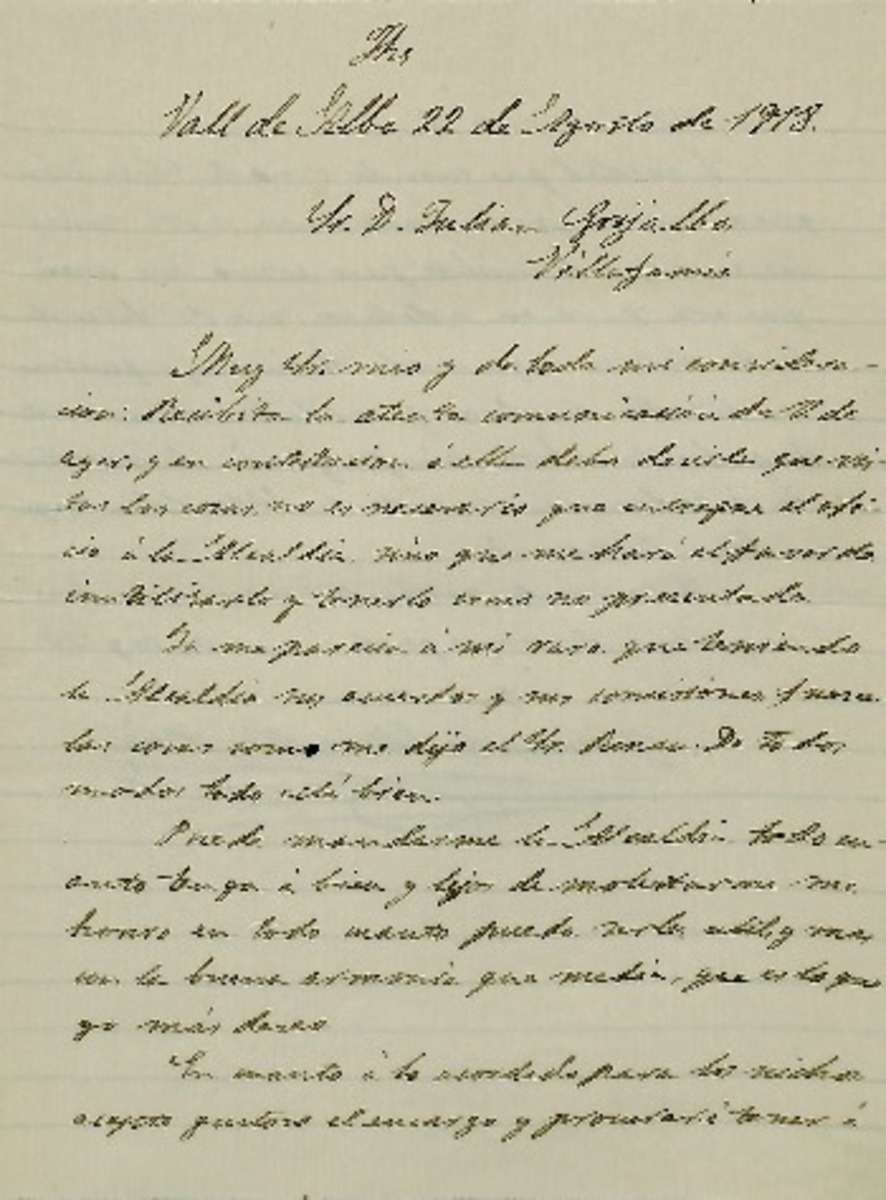 Jhs
Vall de Alba 22 de Agosto de 1918.
Sr. D. Julian Grijalbo
Villafamés
Muy Sr. mio y de toda mi considera-
cion: Recibida la atenta comunicación de V. de
ayer, y en contestacion á ella debo decirle que vis-
tas las cosas no es necesario que entregue el ofi-
cio á la Alcaldia sino que me hará el favor de
inutilizarlo y tenerlo como no presentado.
Ya me parecia á mi raro que teniendo
la Alcaldia sus acuerdos y sus comisiones fueran
las cosas como me dijo el Sr. Renau. De todos
modos todo está bien.
Puede mandarme la Alcaldia todo cu-
anto tenga á bien y lejos de molestarme me
honro en todo cuanto pueda serle util, y mas
con la buena armonia que media, que es lo que
yo más deseo
En cuanto á lo acordado para los nichos
acepto gustoso el encargo y procuraré tener á